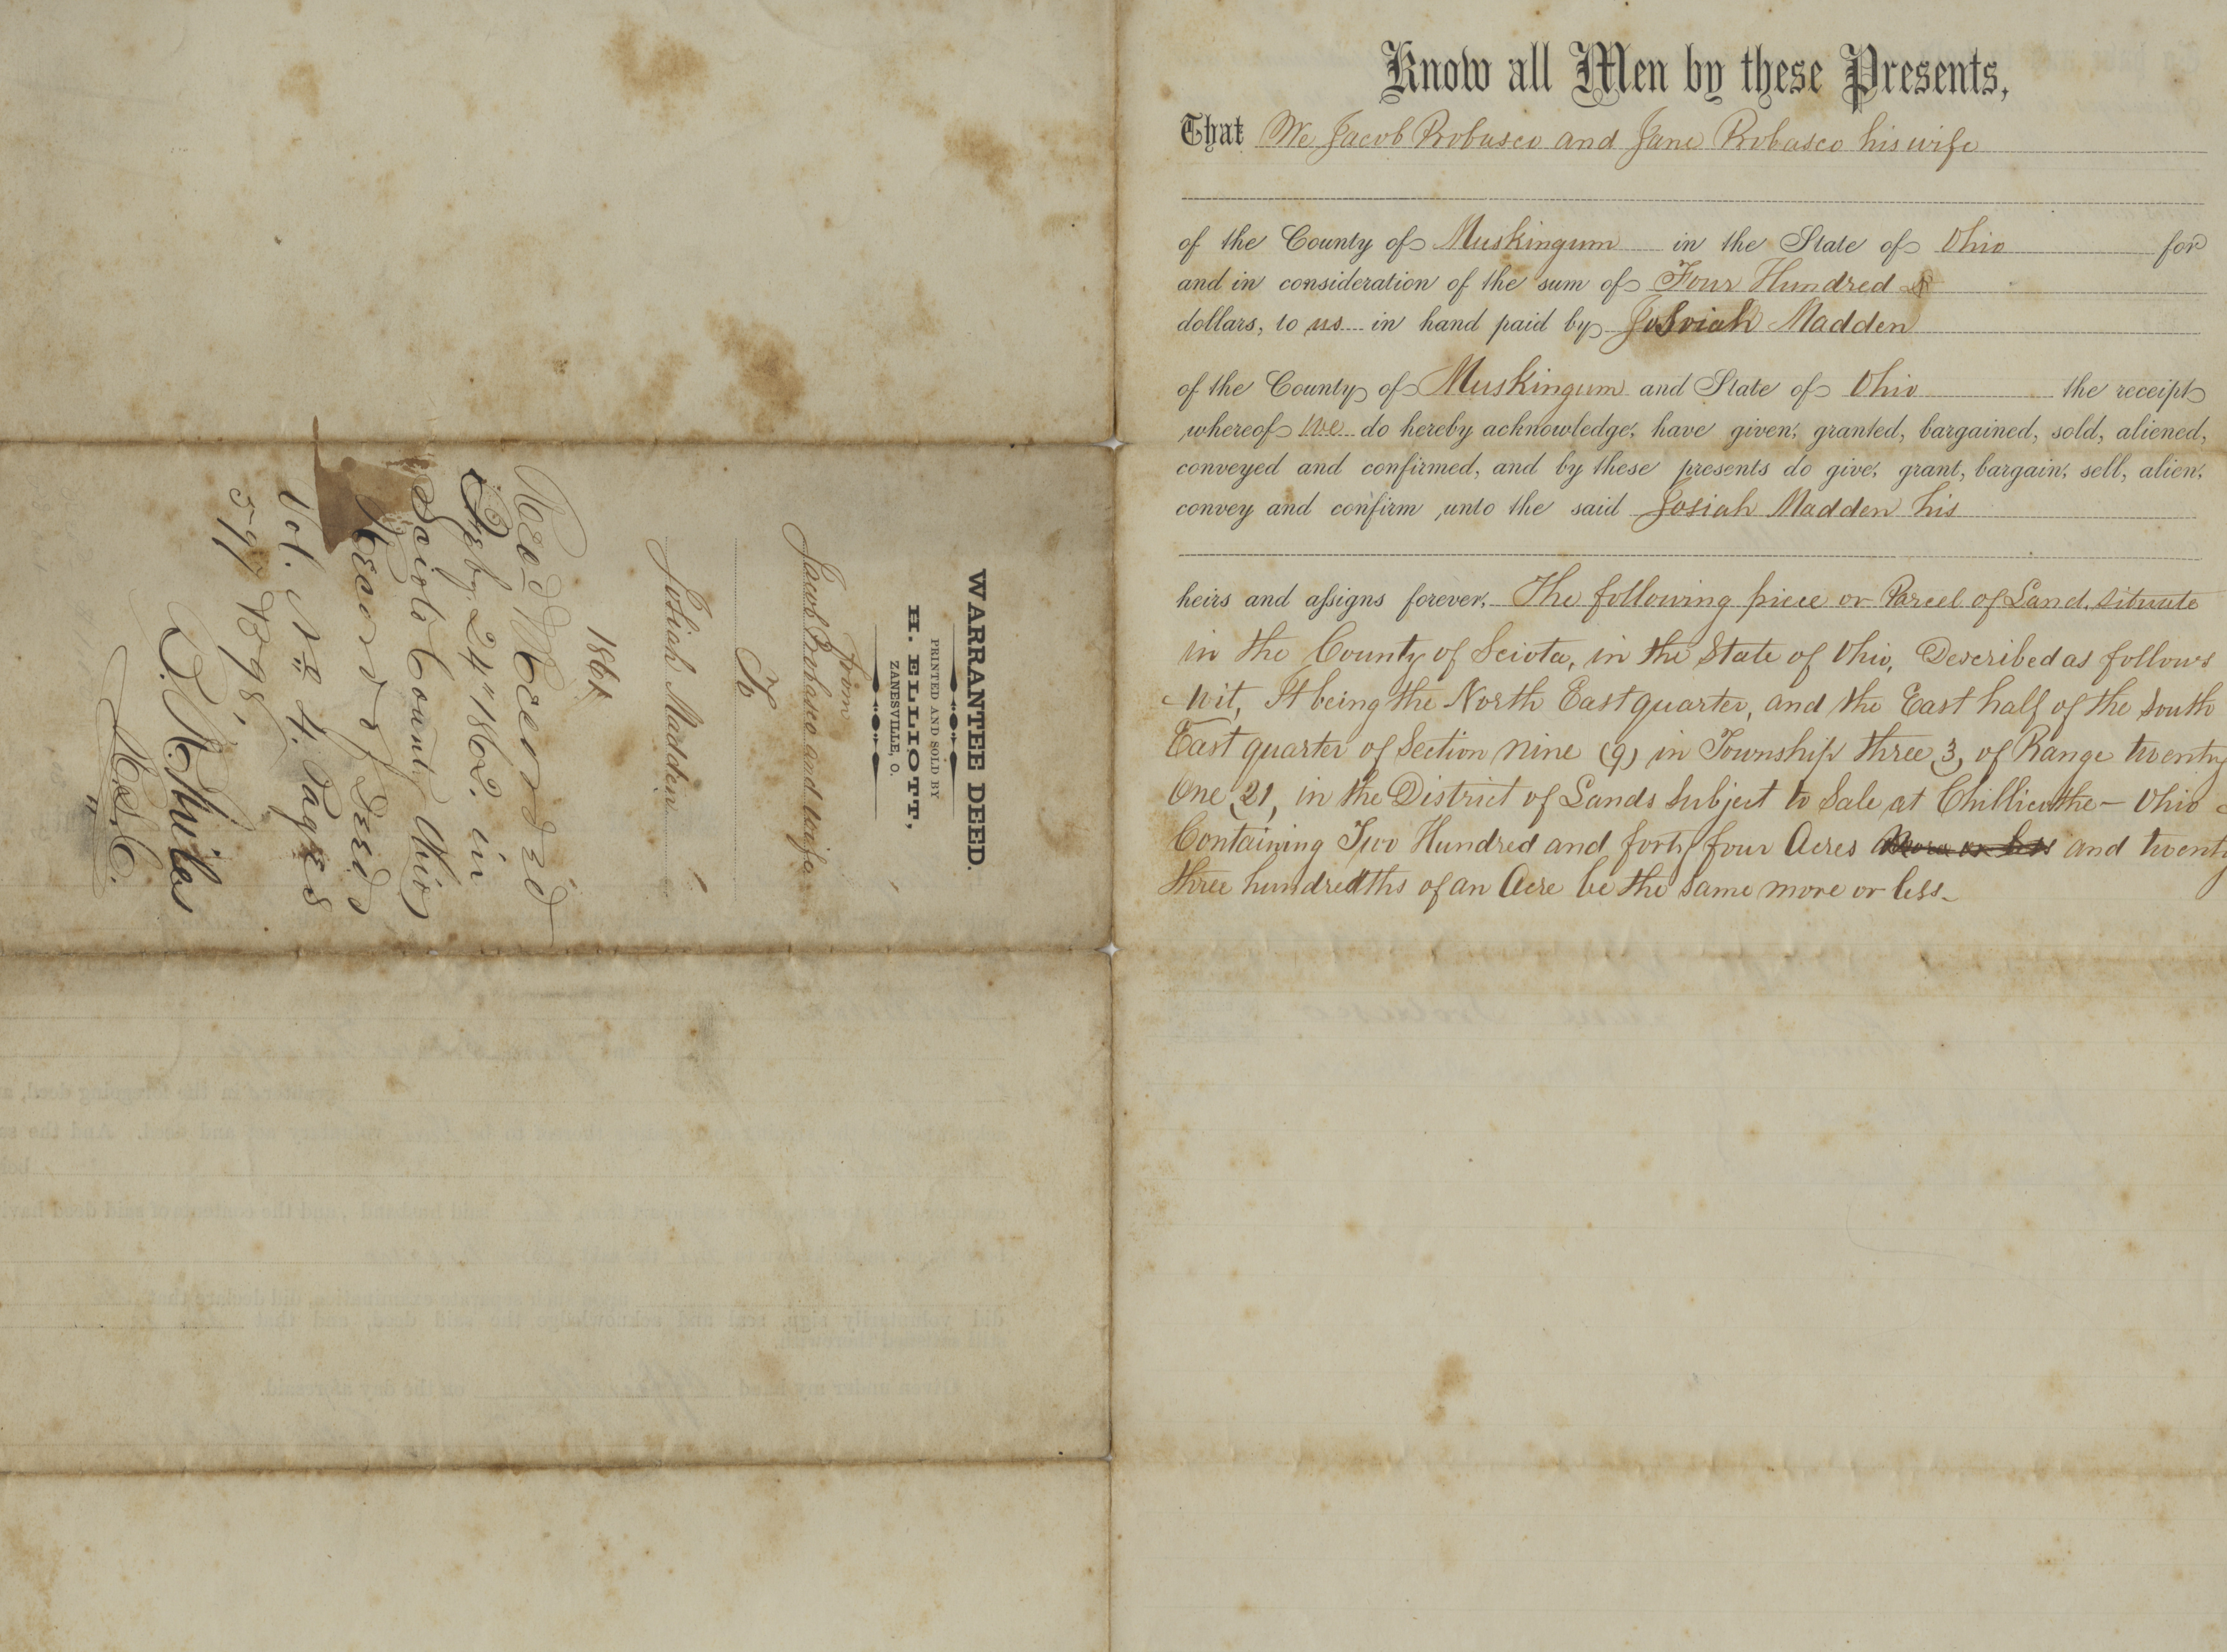 Know all Men by these Presents,
That We Jacob Probasco and Jane Probasco his wife
of the County of Muskingum in the State of Ohio for
and in consideration of the sum of Four Hundred
dollars, to us in hand paid by Josiah Madden
of the County of Muskingum and State of Ohio the receipt
whereof we do hereby acknowledge, have given, granted, bargained, sold, aliened,
conveyed and confirmed, and by these presents do give, grant, bargain, sell, alien,
convey and confirm unto the said Josiah Madden his
heirs and assigns forever, The following piece or Parcel of Land, Situate
in the County of Sciota, in the State of Ohio, Described as follows
wit, It being the North East quarter, and the East half of the South
East quarter of Section nine (9) in Township three 3, of Range twenty
One 21, in the District of Lands Subject to Sale at Chillicothe - Ohio
Containing Two Hundred and forty four Acres more or less and twenty
three hundredths of an Acre be the same more or less.
WARRANTEE DEED.
PRINTED AND SOLD BY
H. ELLIOTT,
ZANESVILLE, O.
From
Jacob Probasco and wife
To
Josiah Madden
1861
Rec'd & Recorded
Feby 24" 1862. in
Scioto County Ohio
Record of Deeds
Vol. No 4. Pages
597 & 98,
R. S. C.